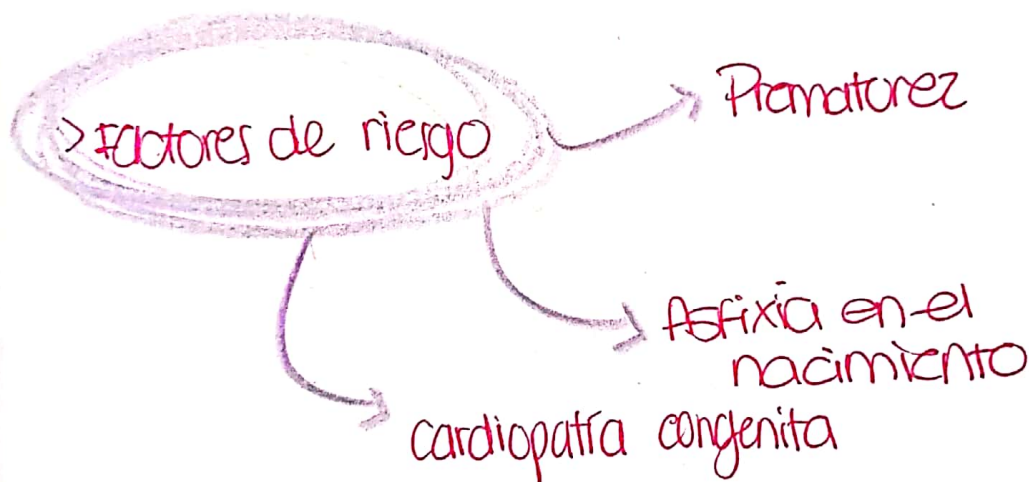 > Factores de riesgo
Prematurez
Asfixia en el
nacimiento
cardiopatía congenita